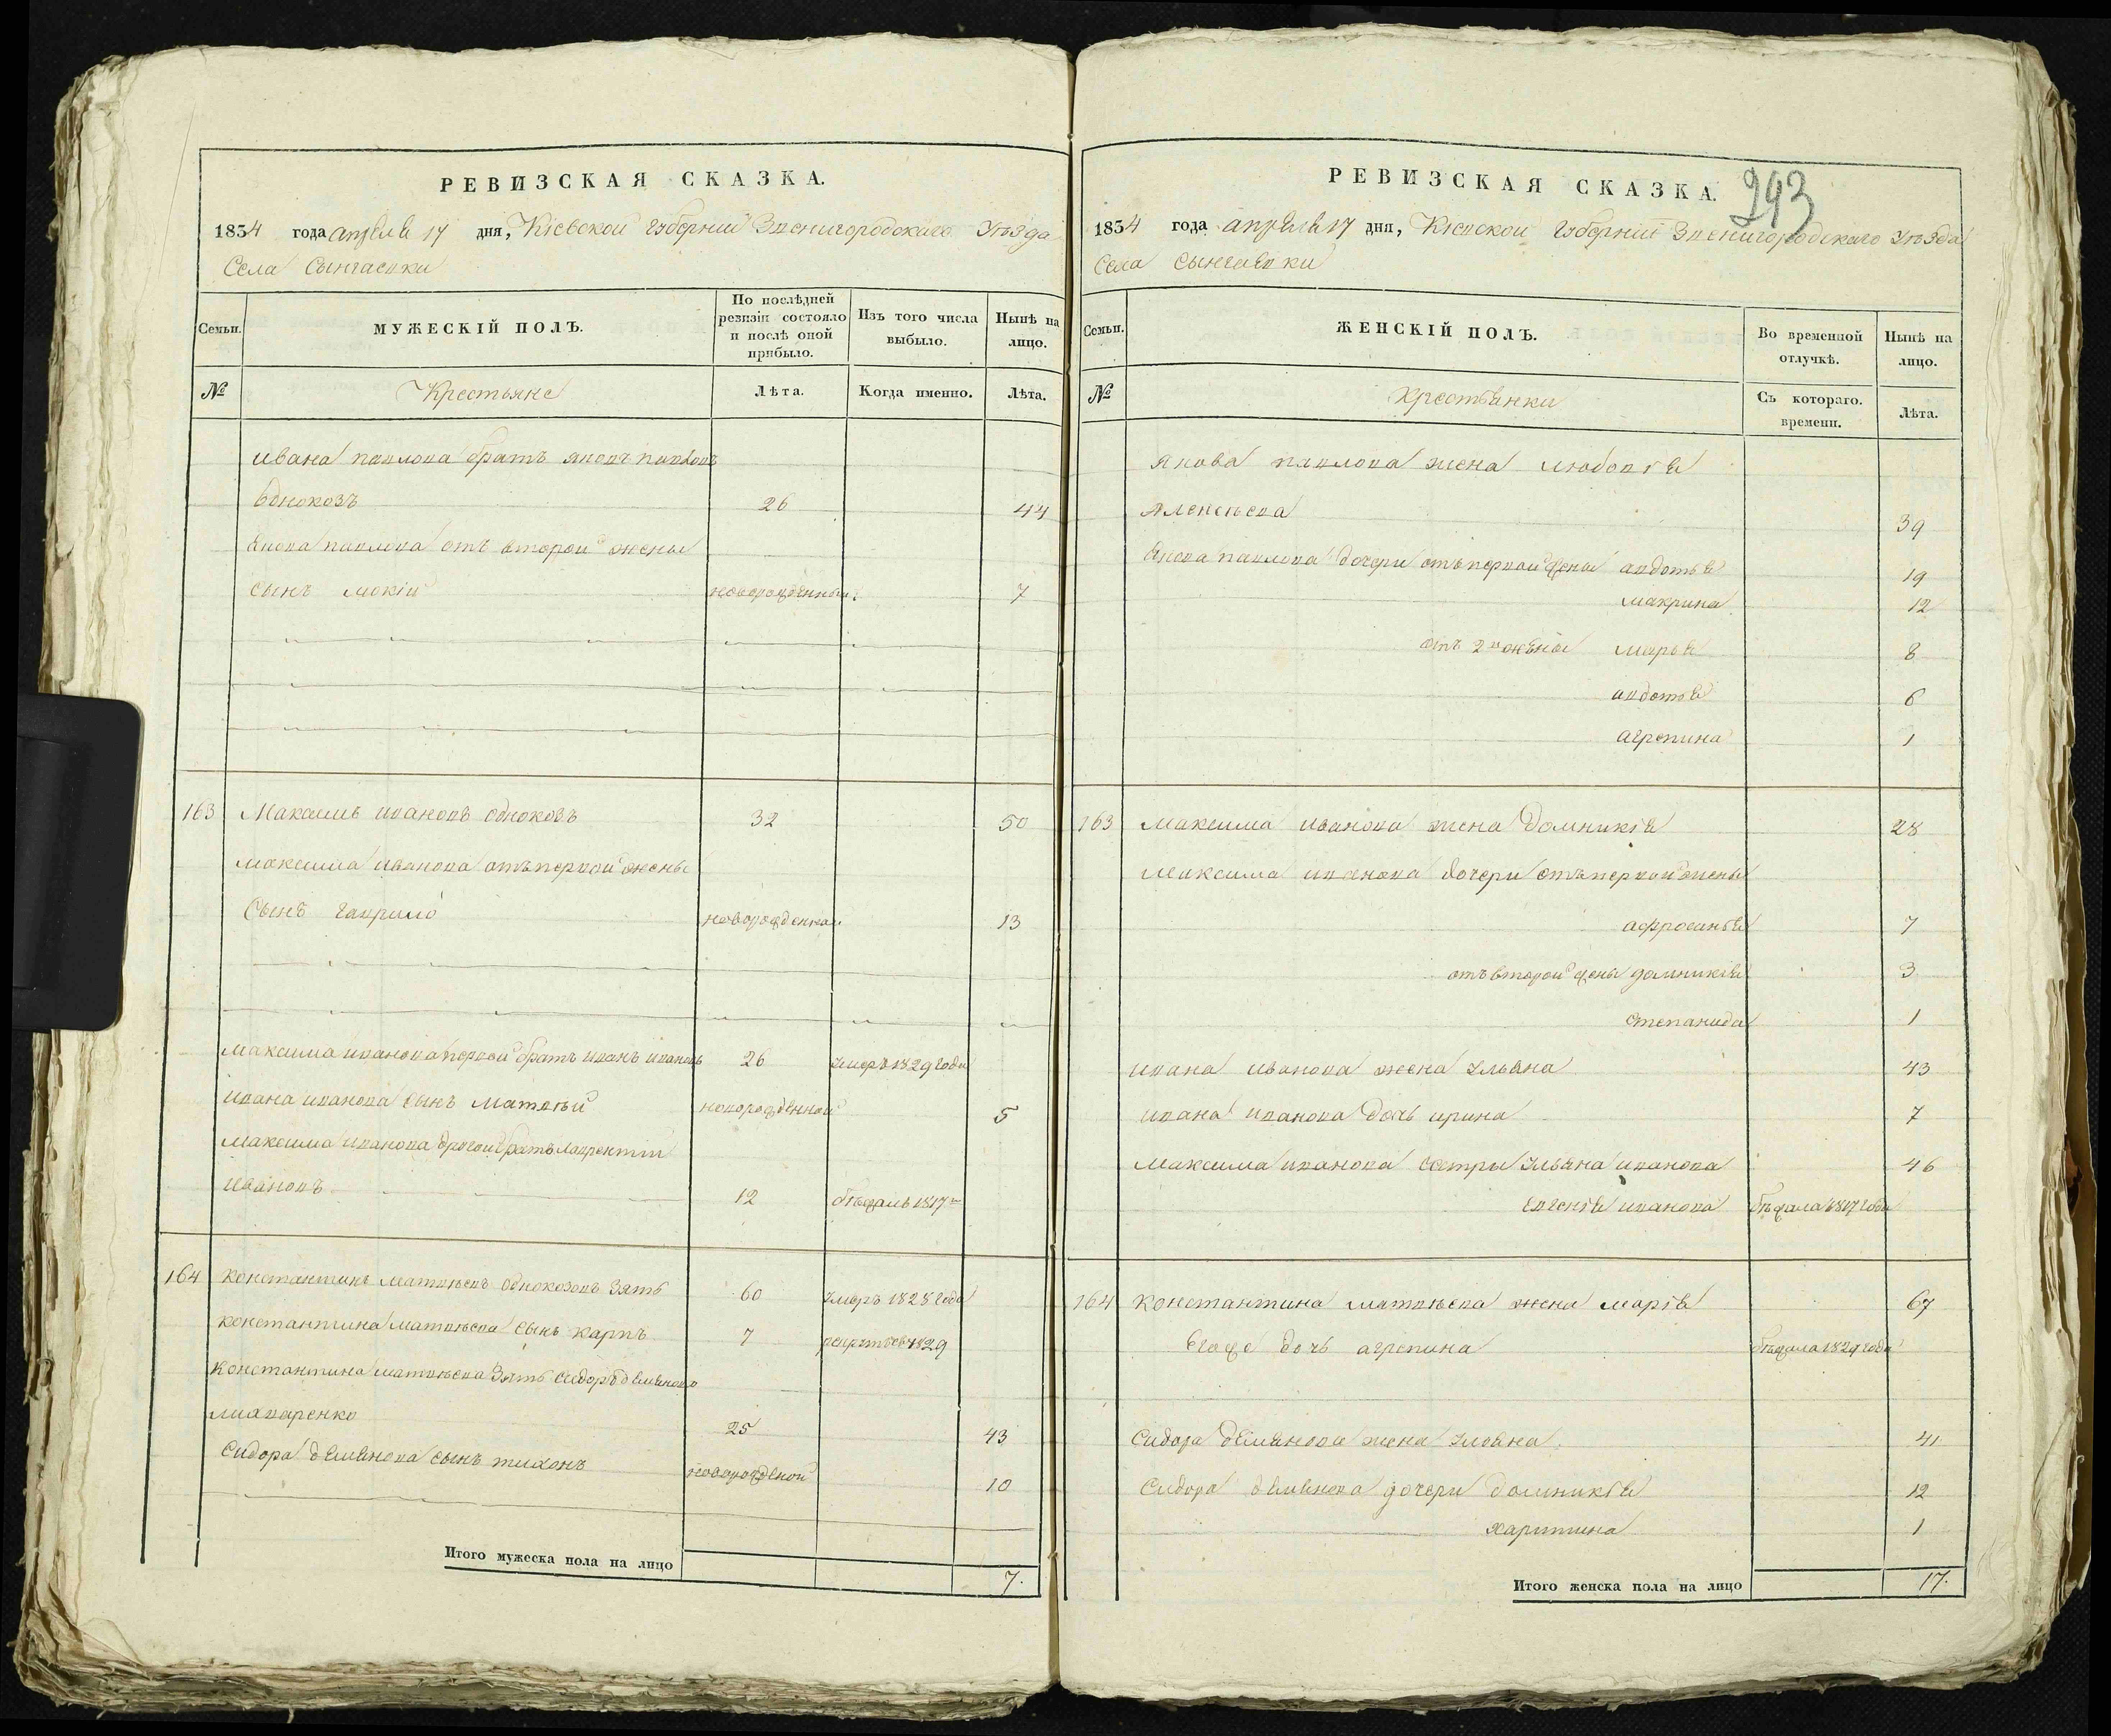 РЕВИЗСКАЯ СКАЗКА.
1834 года апреля 17 дня, Кіевской губерніи Звенигородскаго Уѣзда
Села
Семьи.
МУЖЕСКІЙ ПОЛЪ.
По послѣдней ревизіи состояло и послѣ оной прибыло.
Изъ того числа выбыло.
Нынѣ на лицо.
№
Крестьяне
Лѣта.
Когда именно.
Лѣта.
Ивана павлова братъ яковъ павловъ
Однокозъ 26 44
Якова павлова отъ второй жены
сынъ мокій новорожденный 7
163 Максимъ ивановъ однокозъ 32 50
максима иванова отъ первой жены
Сынъ гаврило новорожденной 13
максима иванова первой братъ иванъ ивановъ 26 умеръ 1829 года
ивана иванова сынъ матвѣй новорожденной 5
максима иванова другой братъ лаврентій
ивановъ 12 бѣжалъ 1817
164 константинъ матвѣевъ однокозовъ зять 60 умеръ 1828 года
константина матвѣева сынъ карпъ 7 1829
константина матвѣева зять сидоръ демяновъ
макаренко 25 43
Сидора демянова сынъ тихонъ новорожденой 10
Итого мужеска пола на лицо 7.
293
РЕВИЗСКАЯ СКАЗКА.
1834 года апреля 17 дня, Кіевской губерніи Звенигородскаго Уѣзда
Села
Семьи.
ЖЕНСКІЙ ПОЛЪ.
Во временной отлучкѣ.
Нынѣ на лицо.
№
Крестьянки
Съ котораго. времени.
Лѣта.
якова павлова жена
39
якова павлова дочери отъ первой жены авдотья 19
макрина 12
отъ 2й жены марья 8
авдотья 6
агрепина 1
163 максима иванова жена домникія 28
максима иванова дочери отъ первой жены
афросинья 7
отъ второй жены домникія 3
степанида 1
ивана иванова жена ульяна 43
ивана иванова дочь ирина 7
максима иванова сестры ульяна иванова 46
евгенія иванова бѣжала 1817 года
164 константина матвѣева жена марія 67
Егоже дочь агрепина бѣжала 1829 года
Сидора демянова жена ульяна 41
Сидора демянова дочери домникія 12
харитина 1
Итого женска пола на лицо 17.